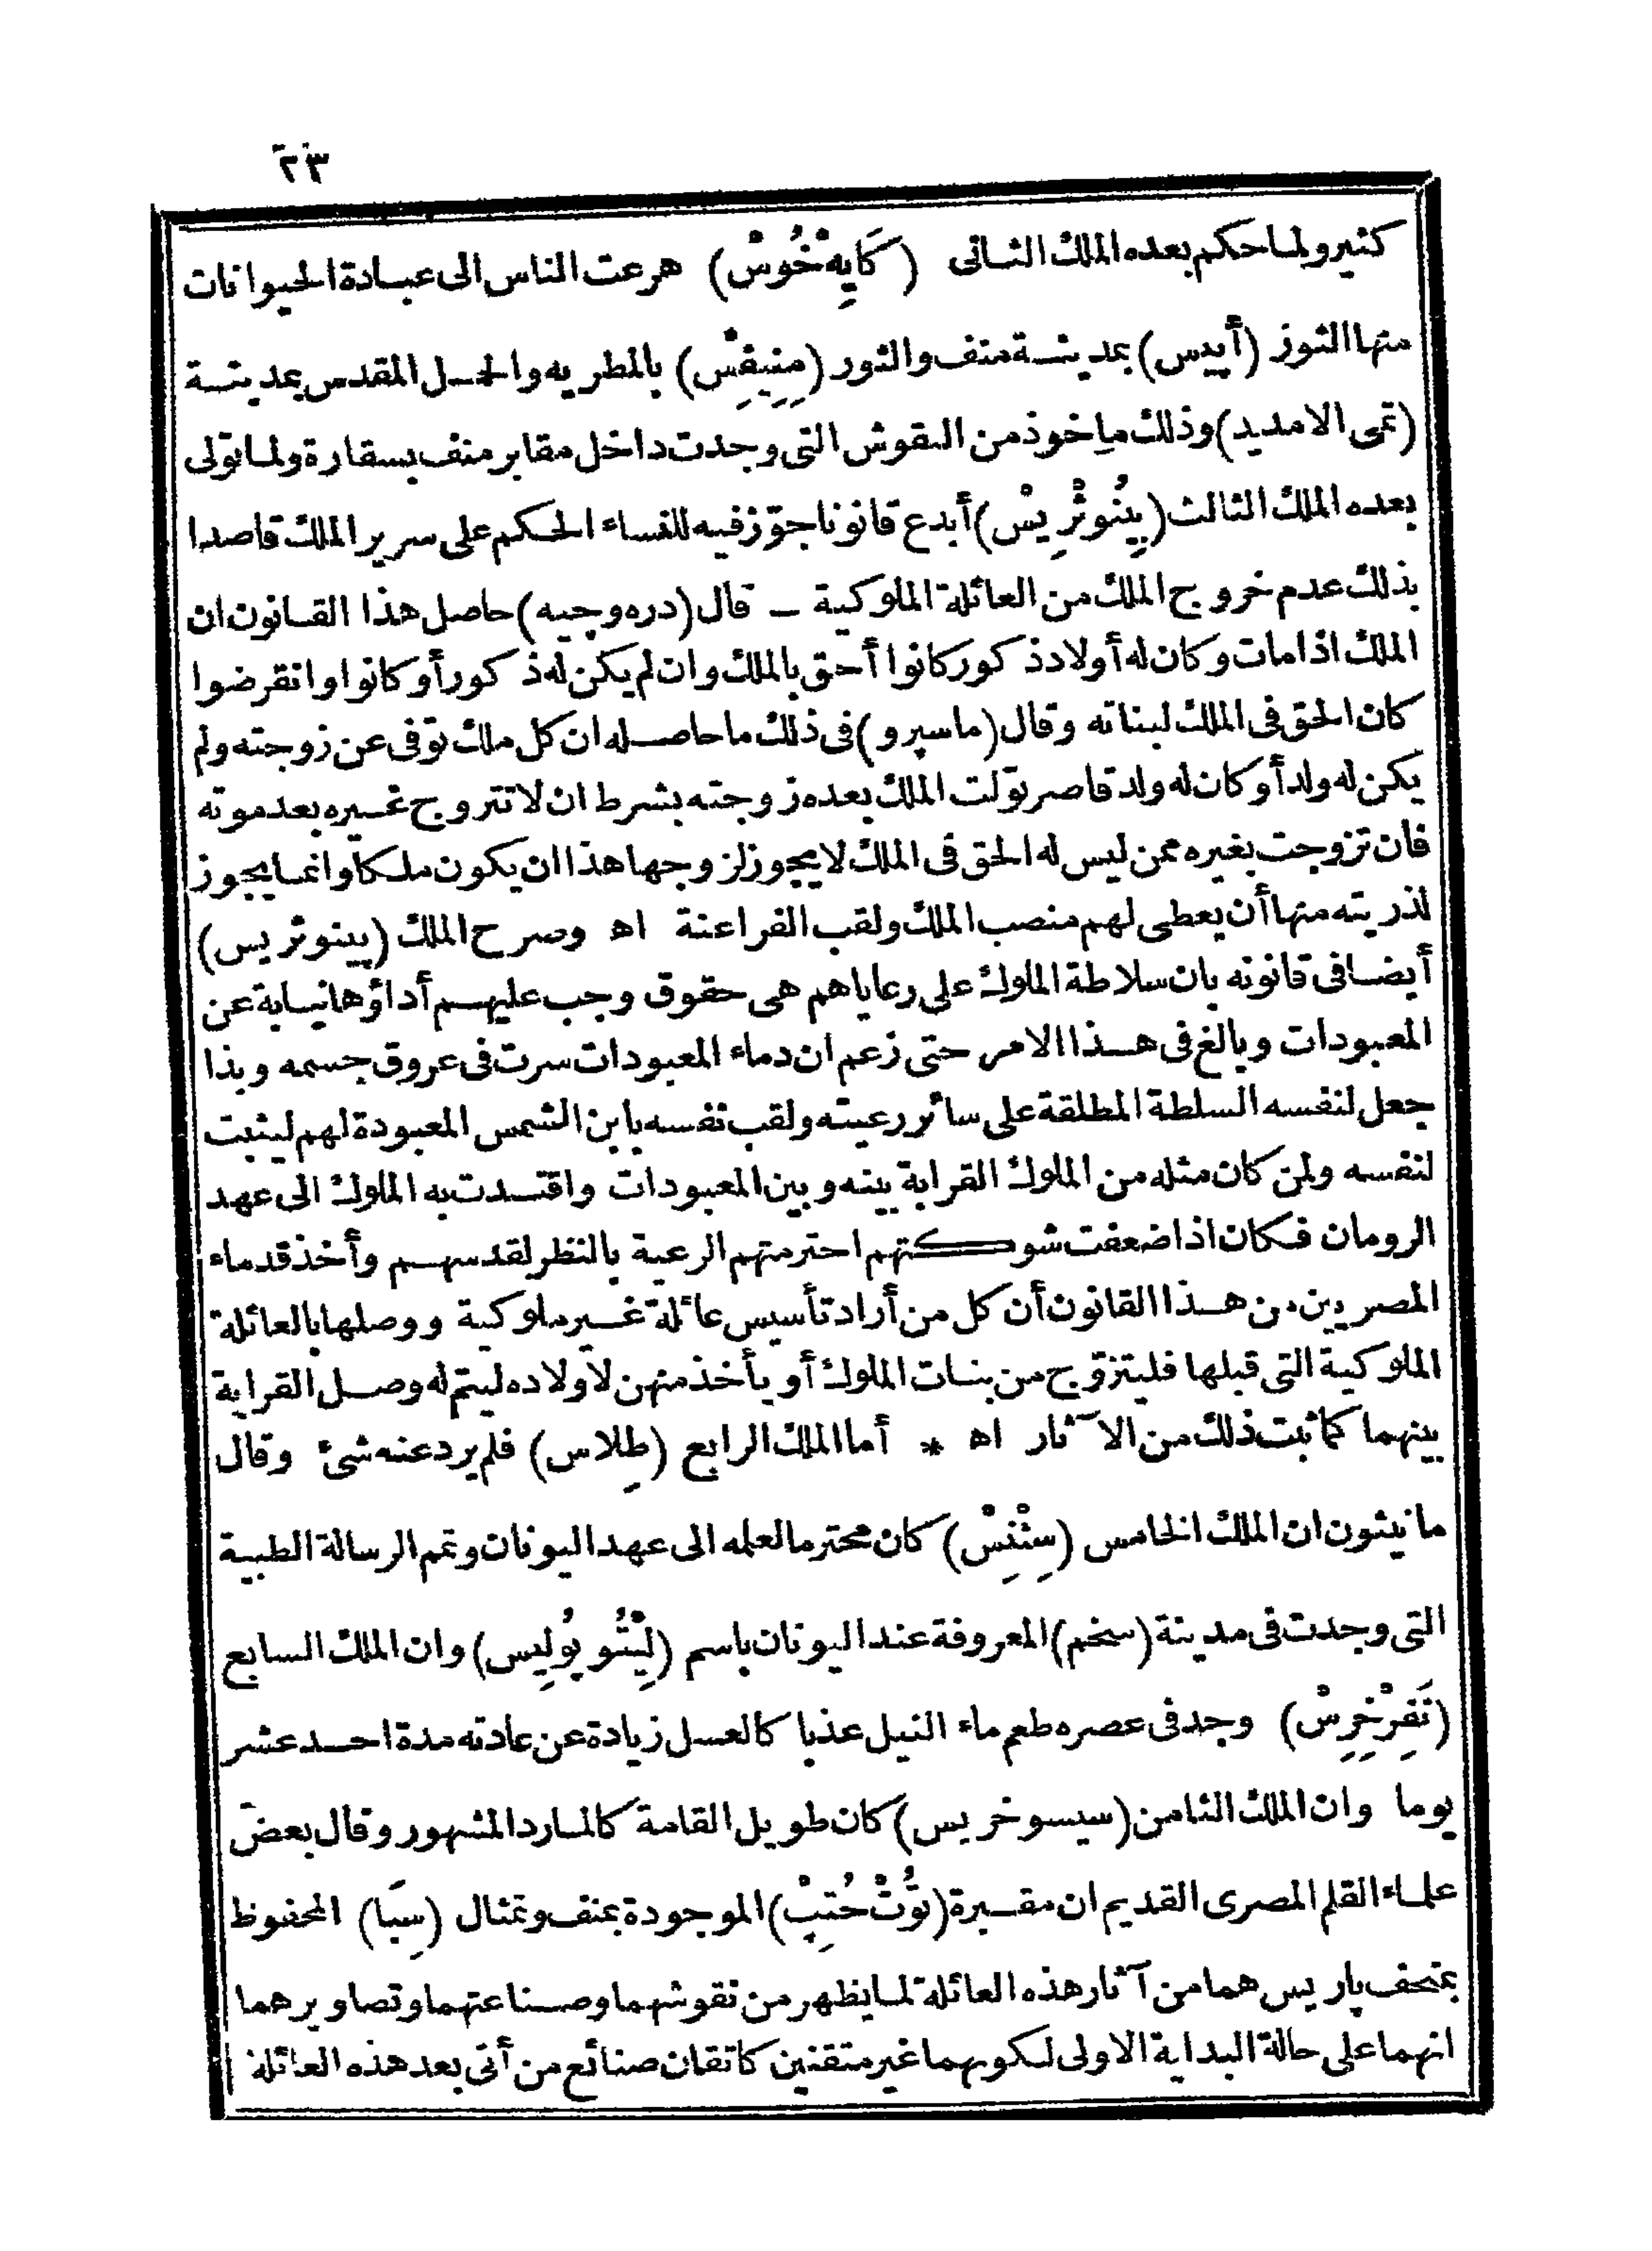 ٢٣
كثير ولما حكم بعده الملك الثانى (كَايِهْخُوسْ) هرعت الناس الى عبادة الحيوانات
منها الثور (أپيس) بمدينة منف والثور (مِنِيفِسْ) بالمطريه والحمل المقدس بمدينة
(تمى الامديد) وذلك ماخوذ من النقوش التى وجدت داخل مقابر منف بسقارة ولما تولى
بعده الملك الثالث (بِينُوتْرِيسْ) أبدع قانونا جوّز فيه للنساء الحكم على سرير الملك قاصدا
بذلك عدم خروج الملك من العائلة الملوكية – قال (دره وجيه) حاصل هذا القانون ان
الملك اذا مات وكان له أولاد ذكور كانوا أحق بالملك وان لم يكن له ذكور أو كانوا وانقرضوا
كان الحق فى الملك لبناته وقال (ماسپرو) فى ذلك ما حاصله ان كل ملك توفى عن زوجته ولم
يكن له ولد أو كان له ولد قاصر تولت الملك بعده زوجته بشرط ان لا تتزوج غيره بعد موته
فان تزوجت بغيره ممن ليس له الحق فى الملك لا يجوز لزوجها هذا ان يكون ملكا وانما يجوز
لذريته منها أن يعطى لهم منصب الملك ولقب الفراعنة اه وصرح الملك (بينوتريس)
أيضا فى قانونه بان سلاطة الملوك على رعاياهم هى حقوق وجب عليهم أداؤها نيابة عن
المعبودات وبالغ فى هذا الامر حتى زعم ان دماء المعبودات سرت فى عروق جسمه وبذا
جعل لنفسه السلطة المطلقة على سائر رعيته ولقب نفسه بابن الشمس المعبودة لهم ليثبت
لنفسه ولمن كان مثله من الملوك القرابة بينه وبين المعبودات واقتدت به الملوك الى عهد
الرومان فكان اذا ضعفت شوكتهم احترمتهم الرعية بالنظر لقدسهم وأخذ قدماء
المصريين من هذا القانون أن كل من أراد تأسيس عائلة غير ملوكية ووصلها بالعائلة
الملوكية التى قبلها فليتزوّج من بنات الملوك أو يأخذ منهن لاولاده ليتم له وصل القرابة
بينهما كما ثبت ذلك من الآثار اه * أما الملك الرابع (طِلاس) فلم يرد عنه شئ وقال
مانيثون ان الملك الخامس (سِتْنِسْ) كان محترما لعلمه الى عهد اليونان وتمم الرسالة الطبية
التى وجدت فى مدينة (سخم) المعروفة عند اليونان باسم (لِيْتُو پُولِيس) وان الملك السابع
(نَفِرْخِرِسْ) وجد فى عصره طعم ماء النيل عذبا كالعسل زيادة عن عادته مدة احد عشر
يوما وان الملك الثامن (سيسوخريس) كان طويل القامة كالمارد المشهور وقال بعض
علماء القلم المصرى القديم ان مقبرة (تُوتْ حُتِپْ) الموجودة بمنف وتمثال (سِپَا) المحفوظ
بمتحف پاريس هما من آثار هذه العائلة لما يظهر من نقوشهما وصناعتهما وتصاويرهما
انهما على حالة البداية الاولى لكونهما غير متقنين كاتقان صنائع من أتى بعد هذه العائلة